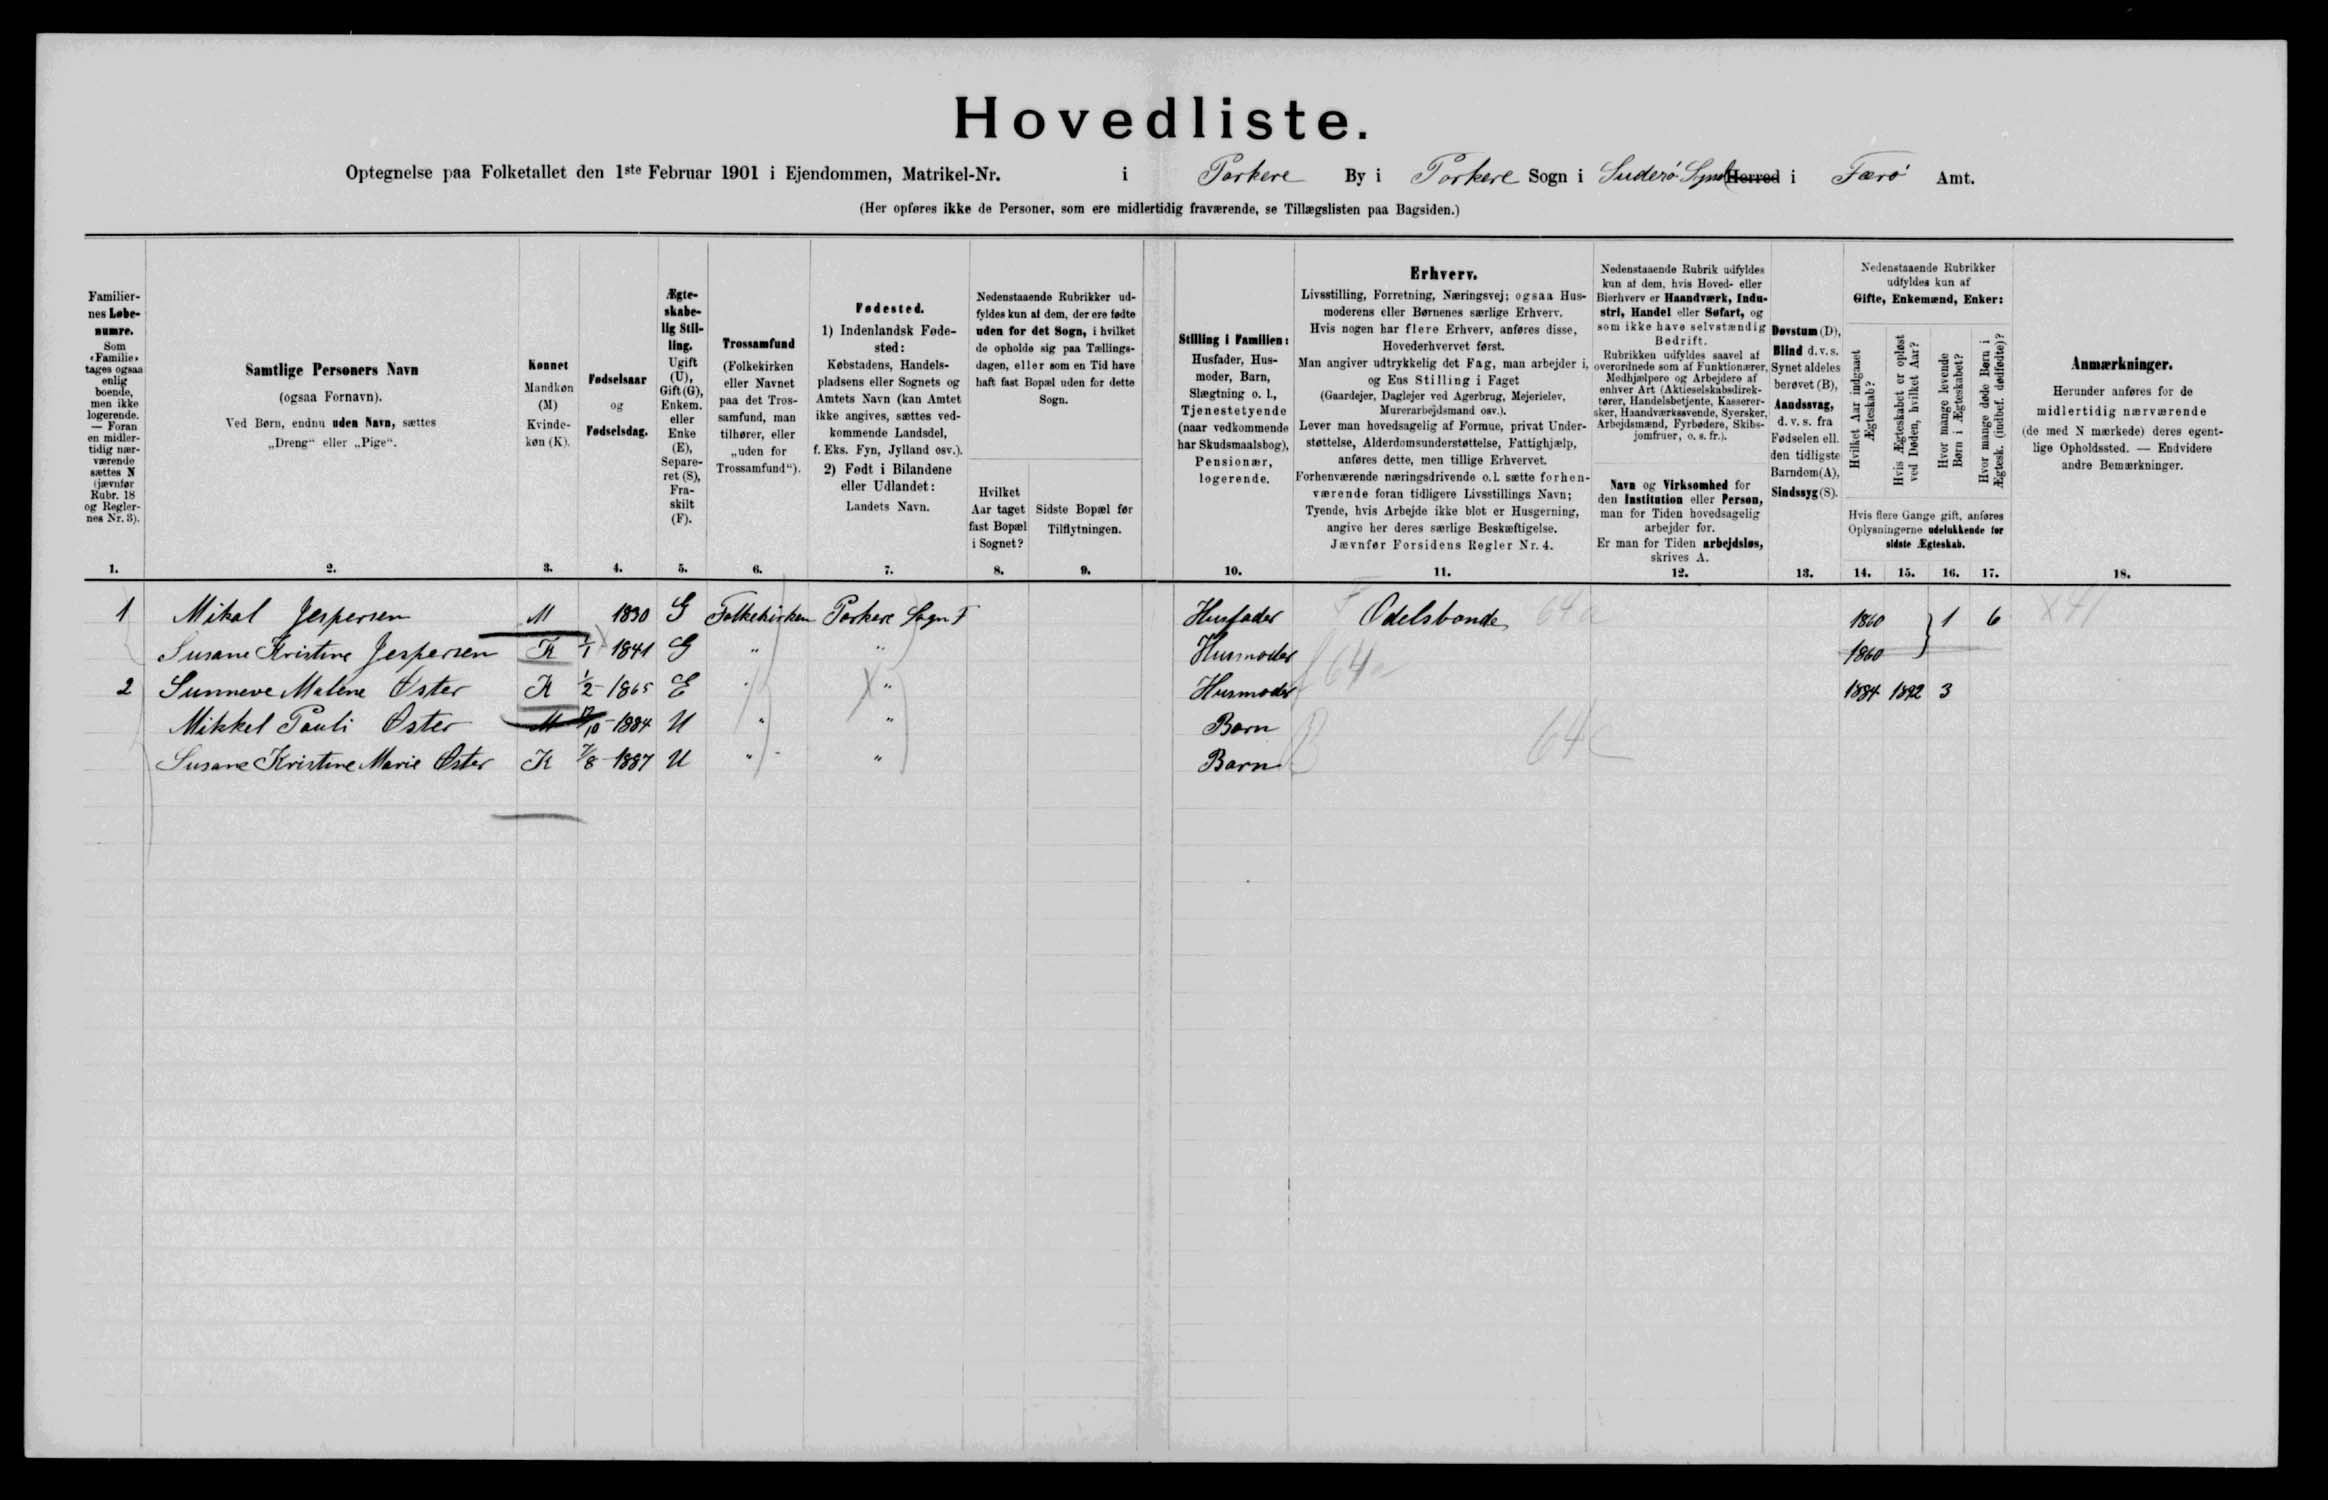 Hovedliste.
Optegnelse paa Folketallet den 1ste Februar 1901 i Ejendommen, Matrikel-Nr. i Porkere By i Porkere Sogn i Suderø Syssel Herred i Færø Amt.
(Her opføres ikke de Personer, som ere midlertidig fraværende, se Tillægslisten paa Bagsiden.)
Familier-
nes Løbe-
numre.
Som
«Familie»
tages ogsaa
enlig
boende,
men ikke
logerende.
— Foran
en midler-
tidig nær-
værende
sættes N
(jævnfør
Rubr. 18
og Regler-
nes Nr. 3).
1.
Samtlige Personers Navn
(ogsaa Fornavn).
Ved Børn, endnu uden Navn, sættes
„Dreng“ eller „Pige“.
2.
Kønnet
Mandkøn
(M)
Kvinde-
køn (K).
3.
Fødselsaar
og
Fødselsdag.
4.
Ægte-
skabe-
lig Stil-
ling.
Ugift
(U),
Gift (G),
Enkem.
eller
Enke
(E),
Separe-
ret (S),
Fra-
skilt
(F).
5.
Trossamfund
(Folkekirken
eller Navnet
paa det Tros-
samfund, man
tilhører, eller
„uden for
Trossamfund“).
6.
Fødested.
1) Indenlandsk Føde-
sted:
Købstadens, Handels-
pladsens eller Sognets og
Amtets Navn (kan Amtet
ikke angives, sættes ved-
kommende Landsdel,
f. Eks. Fyn, Jylland osv.).
2) Født i Bilandene
eller Udlandet:
Landets Navn.
7.
Nedenstaaende Rubrikker ud-
fyldes kun af dem, der ere fødte
uden for det Sogn, i hvilket
de opholde sig paa Tællings-
dagen, eller som en Tid have
haft fast Bopæl uden for dette
Sogn.
Hvilket
Aar taget
fast Bopæl
i Sognet?
8.
Sidste Bopæl før
Tilflytningen.
9.
Stilling i Familien:
Husfader, Hus-
moder, Barn,
Slægtning o. l.,
Tjenestetyende
(naar vedkommende
har Skudsmaalsbog),
Pensionær,
logerende.
10.
Erhverv.
Livsstilling, Forretning, Næringsvej; ogsaa Hus-
moderens eller Børnenes særlige Erhverv.
Hvis nogen har flere Erhverv, anføres disse,
Hovederhvervet først.
Man angiver udtrykkelig det Fag, man arbejder i,
og Ens Stilling i Faget
(Gaardejer, Daglejer ved Agerbrug, Mejerielev,
Murerarbejdsmand osv.).
Lever man hovedsagelig af Formue, privat Under-
støttelse, Alderdomsunderstøttelse, Fattighjælp,
anføres dette, men tillige Erhvervet.
Forhenværende næringsdrivende o. l. sætte forhen-
værende foran tidligere Livsstillings Navn;
Tyende, hvis Arbejde ikke blot er Husgerning,
angive her deres særlige Beskæftigelse.
Jævnfør Forsidens Regler Nr. 4.
11.
Nedenstaaende Rubrik udfyldes
kun af dem, hvis Hoved- eller
Bierhverv er Haandværk, Indu-
stri, Handel eller Søfart, og
som ikke have selvstændig
Bedrift.
Rubrikken udfyldes saavel af
overordnede som af Funktionærer,
Medhjælpere og Arbejdere af
enhver Art (Aktieselskabsdirek-
tører, Handelsbetjente, Kasserer-
sker, Haandværkssvende, Syersker,
Arbejdsmænd, Fyrbødere, Skibs-
jomfruer, o. s. fr.).
Navn og Virksomhed for
den Institution eller Person,
man for Tiden hovedsagelig
arbejder for.
Er man for Tiden arbejdsløs,
skrives A.
12.
Døvstum (D),
Blind d. v. s.
Synet aldeles
berøvet (B),
Aandssvag,
d. v. s. fra
Fødselen ell.
den tidligste
Barndom (A),
Sindssyg (S).
13.
Nedenstaaende Rubrikker
udfyldes kun af
Gifte, Enkemænd, Enker:
Hvilket Aar indgaaet
Ægteskab?
Hvis Ægteskabet er opløst
ved Døden, hvilket Aar?
Hvor mange levende
Børn i Ægteskabet?
Hvor mange døde Børn i
Ægtesk. (indbef. dødfødte)?
Hvis flere Gange gift, anføres
Oplysningerne udelukkende for
sidste Ægteskab.
14. 15. 16. 17.
Anmærkninger.
Herunder anføres for de
midlertidig nærværende
(de med N mærkede) deres egent-
lige Opholdssted. — Endvidere
andre Bemærkninger.
18.
1 Mikal Jespersen M 1830 G Folkekirken Porkere Sogn F Husfader F Odelsbonde 64a 1860 } 1 6 X41
Susane Kristine Jespersen K 1/1 1841 G " " Husmoder 1860
2 Sunneve Malene Øster K 1/2 - 1865 E " X " Husmoder f 64a 1884 1892 3
Mikkel Pauli Øster M 17/10 - 1884 U " " Barn
Susane Kristine Marie Øster K 7/8 - 1887 U " " Barn B 64c